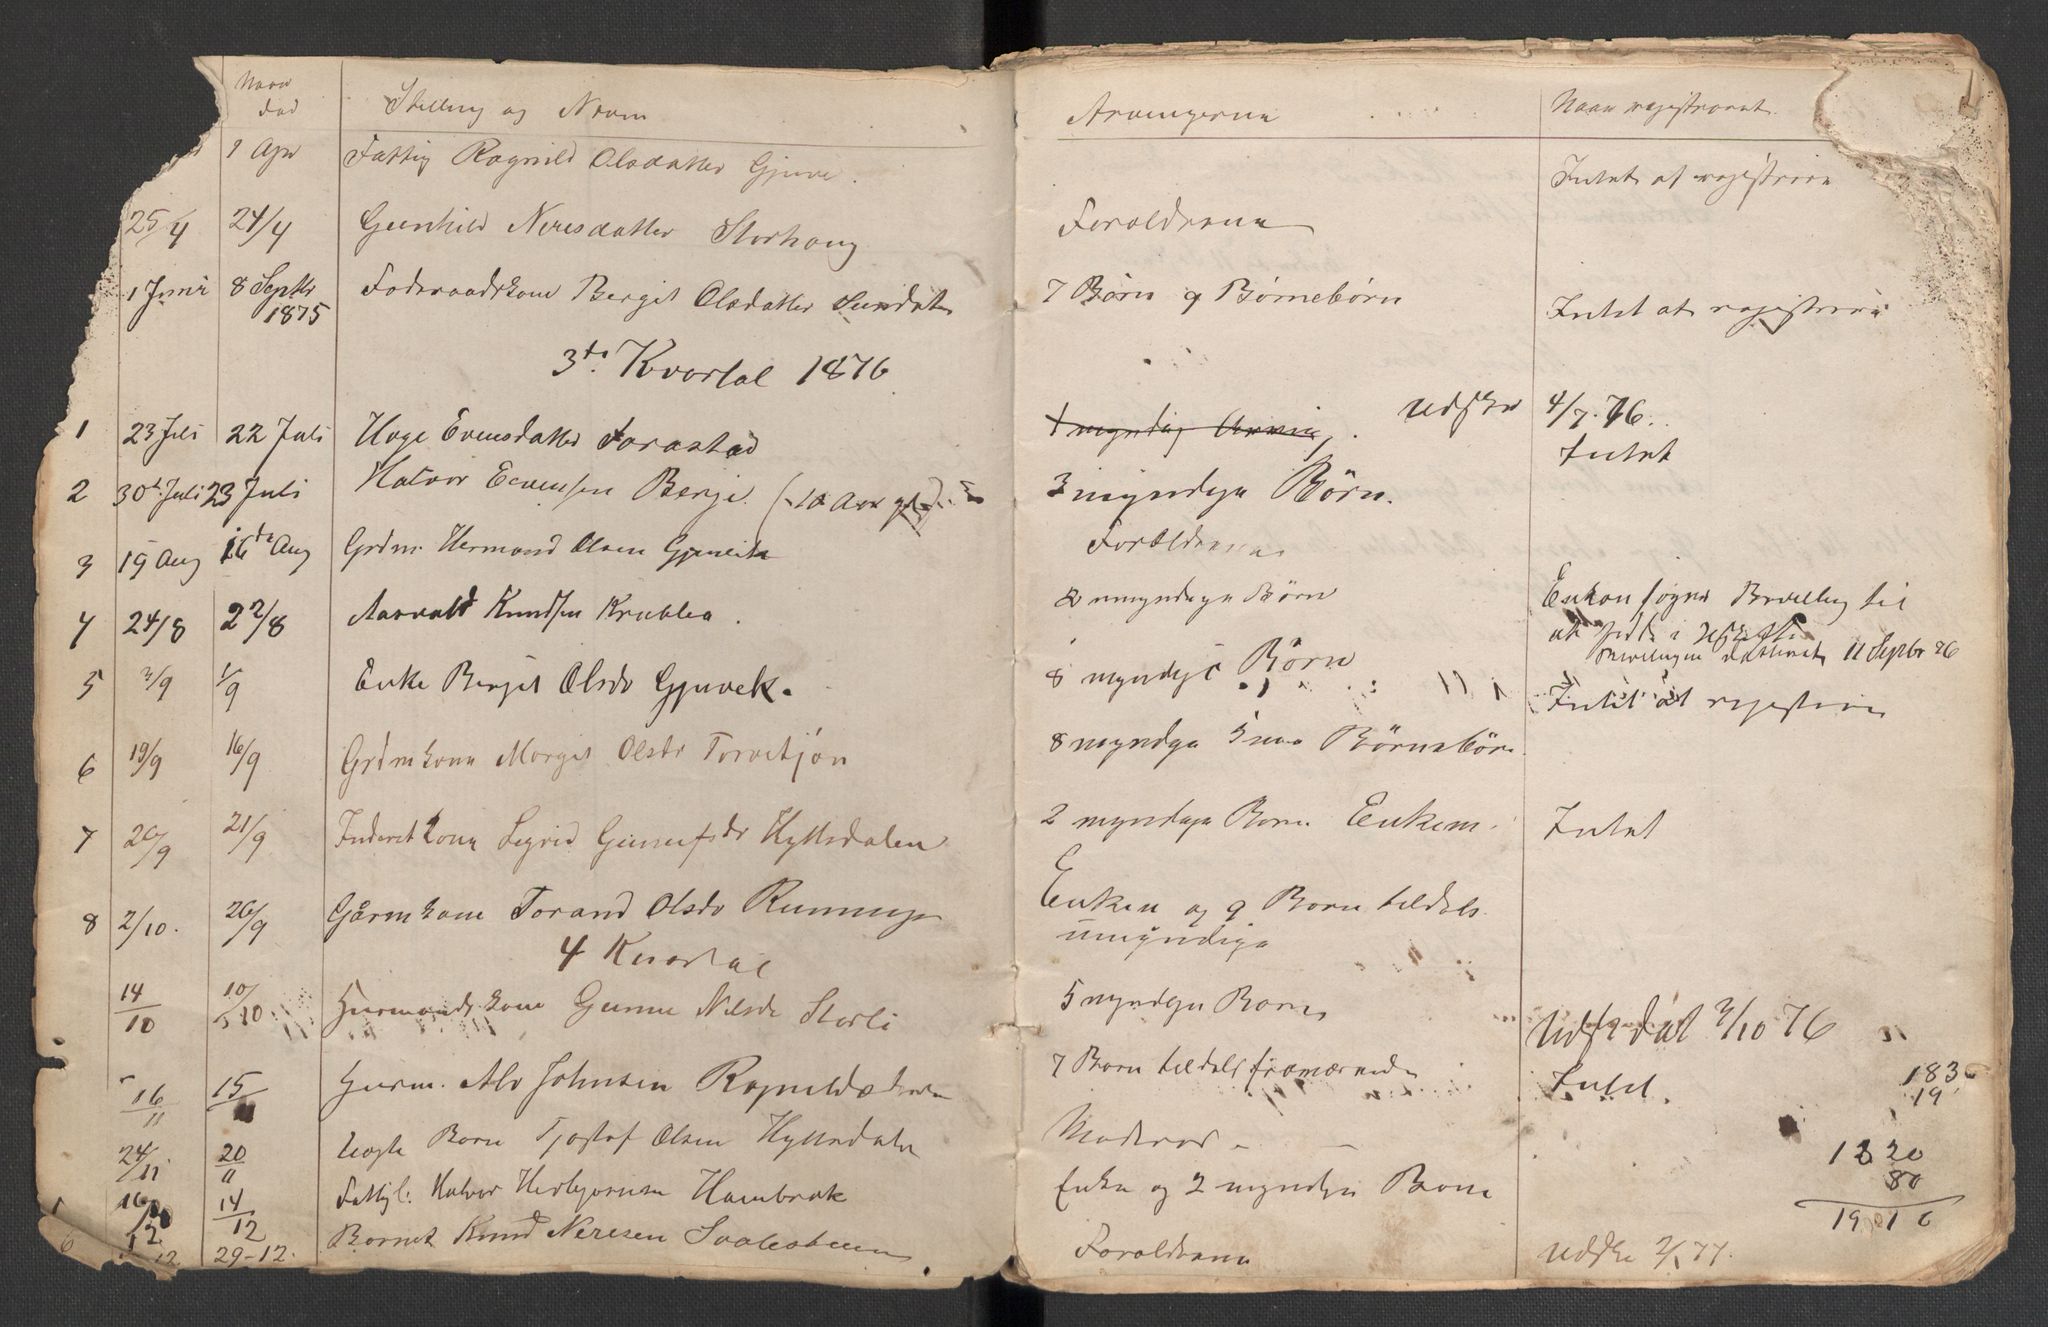 Naar død Stilling og Navn Arvingerne Naar registreret
1 Apr Fattig Ragnild Olsdatter Gjuve. Intet at registrere
25/4 24/4 Gunhild Neresdatter Storhaug Foreldrene
1 Juni 8 Septbr 1875 Foderaadskone Bergit Olsdatter 7 Børn og Børnebørn Intet at registrere
3de Kvartal 1876
Udskr 4/7.76.
1 23 Juli 22 Juli Hage Evensdatter 1 myndig Arving, Intet
2 30te Juli 23 Juli Halvor Evensen Berge. 3 myndige Børn.
3 19 Aug 16de Aug Grdm. Hermond Olsen Foreldrene
4 24/8 22/8 Aasvald Knudsen 2 umyndige Børn Enken søger Bevilling til
at sidde i uskiftet
Bevillingen dateret 11 Septbr 76
5 3/9 1/9 Enke Bergit Olsdr Gjuvek. 8 myndige Børn Intet at registrere
6 19/9 16/9 Grdmkone Margit Olsdr Torvetjøn 8 myndige Børnebørn
7 26/9 21/9 Inderstkone Sigrid Hyltedalen 2 myndige Børn Enkem. Intet
8 2/10. 26/9 Gårmkone Torand Olsdr Enken og 9 Børn tildels
umyndige
4 Kvartal
14/10 10/10 Gurmandskone Gunne Nilsdr Storli 5 myndige Børn Udskr dat 3/10 76
16/11 15 Gurm. Alv Johnsen 7 Børn tildels Intet. 183
19
24/11 20/11 Børn Tjostof Olsen Hyltedalen Moderen 1820
80
16/12 14/12 Fattigl. Halvor Herbjørnsen Hambrok Enke og 2 myndige Børn 1910
12 29-12. Barnet Knud Neresen Foreldrene Udskr 2/1 77.